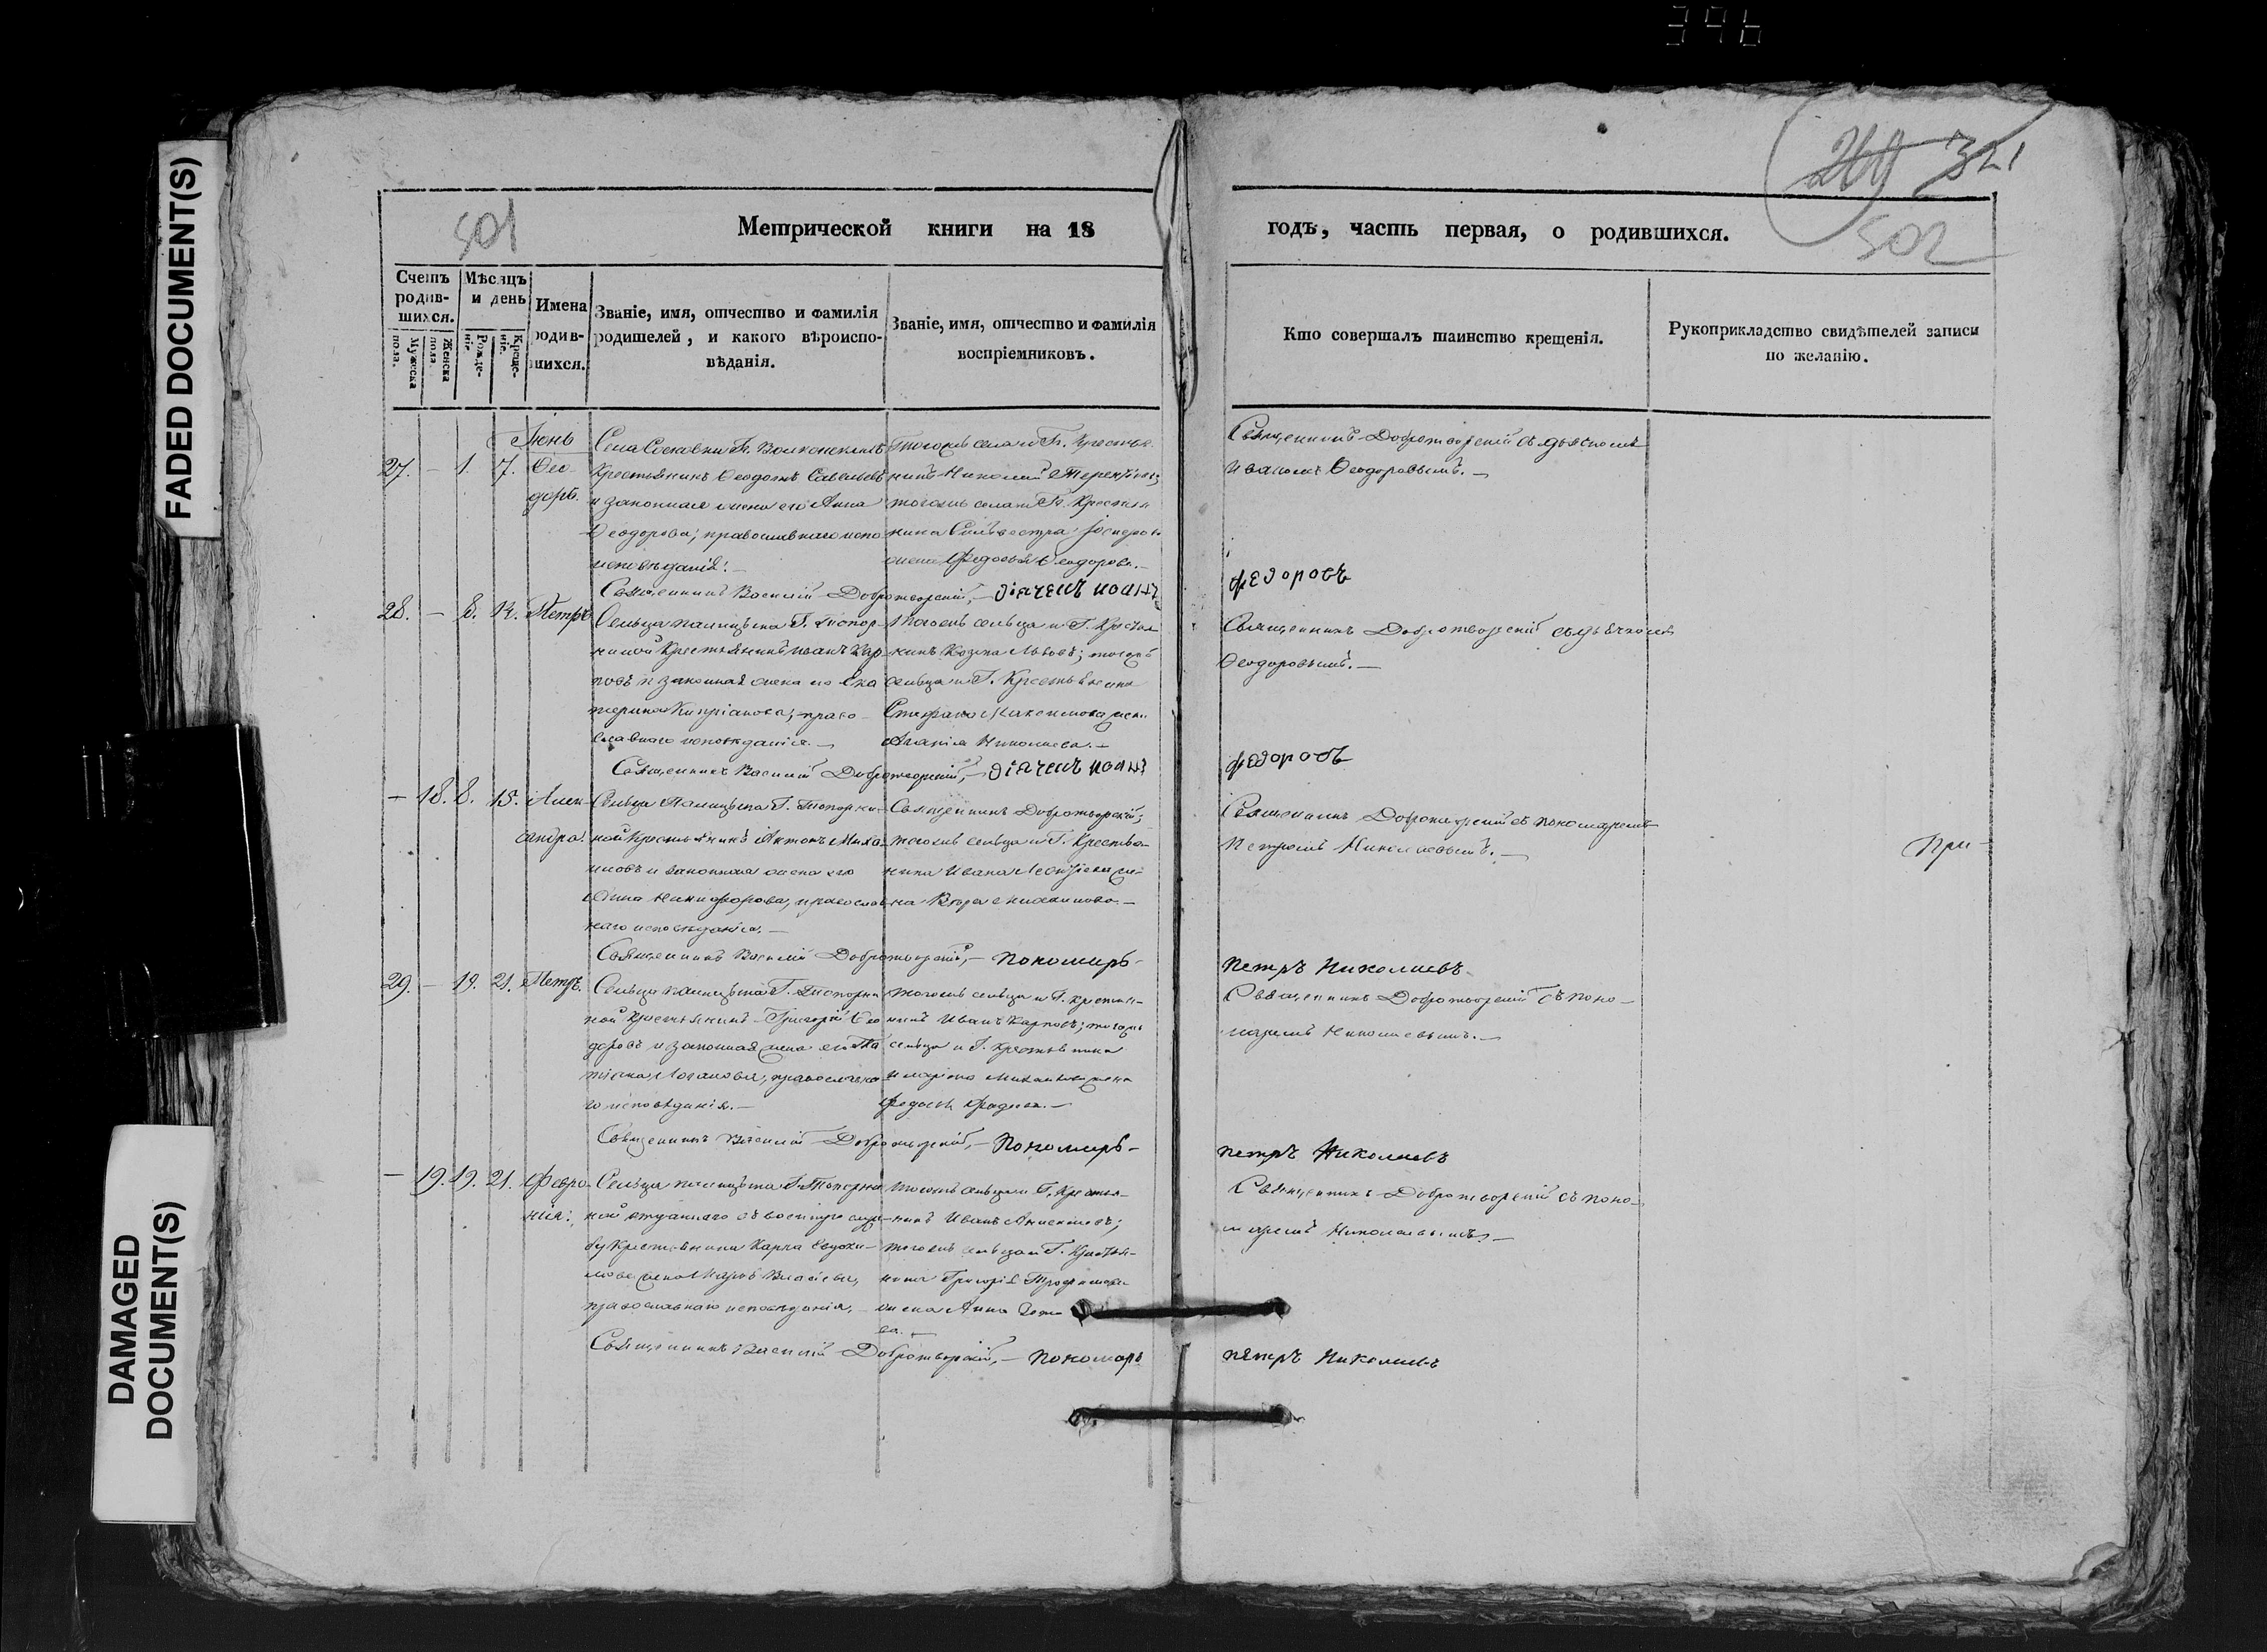 396
FADED DOCUMENT(S)
DAMAGED DOCUMENT(S)
501
321
502
Метрической книги на 18
годъ, часть первая, о родившихся.
Счетъ родив-шихся.
Мужеска пола.
Женска пола.
Мѣсяцъ и день
Рожде-ніе.
Креще-ніе.
Имена родив-шихся.
Званіе, имя, отчество и фамилія родителей, и какого вѣроиспо-вѣданія.
Званіе, имя, отчество и фамилія воспріемниковъ.
Кто совершалъ таинство крещенія.
Рукоприкладство свидѣтелей записи по желанію.
Іюнь
27. — 1. 7. Ѳео-
доръ.
Села Сосновки Г. Волконскихъ
Крестьянинъ Ѳеодотъ Савельевъ
и законная жена его Анна
Ѳеодорова; православнаго испо
исповѣданія. —
тогожъ села и Г. Крестья-
нинъ Николай Терентьевъ;
тогожъ села и Г. Крестья
жена Федосья Ѳеодорова. —
Священникъ Доброотворскій съ дьячкомъ
Иваномъ Ѳеодоровымъ. —
Священникъ Василій Доброотворскій, — дiячекъ иоанъ
федоровъ
28. — 8. 14. Петръ
Сельца Палицына Г. Топор-
ниной Крестьянинъ Иванъ Кар-
повъ и законная жена его Ека
терина Кипріанова; право-
славнаго исповѣданія. —
Тогожъ сельца и Г. Крестья
нинъ Козма Львовъ; тогожъ
сельца и Г. Крестьянина
Стефана Максимова жена
Агапія Николаева. —
Священникъ Доброотворскій съ дьячкомъ
Ѳеодоровымъ. —
Священникъ Василій Доброотворскій, — дiячекъ иоанъ
федоровъ
— 18. 8. 15. Алек-
сандра.
Сельца Палицына Г. Топорни-
ной Крестьянинъ Антонъ Миха
иловъ и законная жена его
Анна Никифорова, православ
наго исповѣданія. —
Священникъ Доброотворскій;
тогожъ сельца и Г. Крестья-
нина Ивана Леонтіева же-
на
Священникъ Доброотворскій съ пономаремъ
Петромъ Николаевымъ. —
При-
Священникъ Василій Доброотворскій, — пономарь
петръ Николаевъ
29. — 19. 21. Петръ.
Сельца Палицына Г. Топорни
ной Крестьянинъ Григорій Ѳео
доровъ и законная жена его Та
тіана православна
го исповѣданія. —
тогожъ сельца и Г. крестья-
нинъ Иванъ Карповъ; тогожъ
сельца и Г. Крестьянина
Иларіона Михайлова жена
Федосья Фадеева. —
Священникъ Доброотворскій съ поно-
маремъ Николаевымъ. —
Священникъ Василій Доброотворскій, — пономарь
петръ Николаевъ
— 19. 19. 21. Февро-
нія.
Сельца Палицына Г. Топорни
ной отданнаго въ военную служ-
бу Крестьянина Карпа Евдоки-
мова жена Марья Власьева,
православнаго исповѣданія, —
тогожъ сельца и Г. Крестья-
нинъ Иванъ
тогожъ сельца и Г. Крестья-
нина Григорія Трофимова
жена Анна
ва. —
Священникъ Доброотворскій съ поно-
маремъ Николаевымъ. —
Священникъ Василій Доброотворскій, — пономарь
петръ Николаевъ